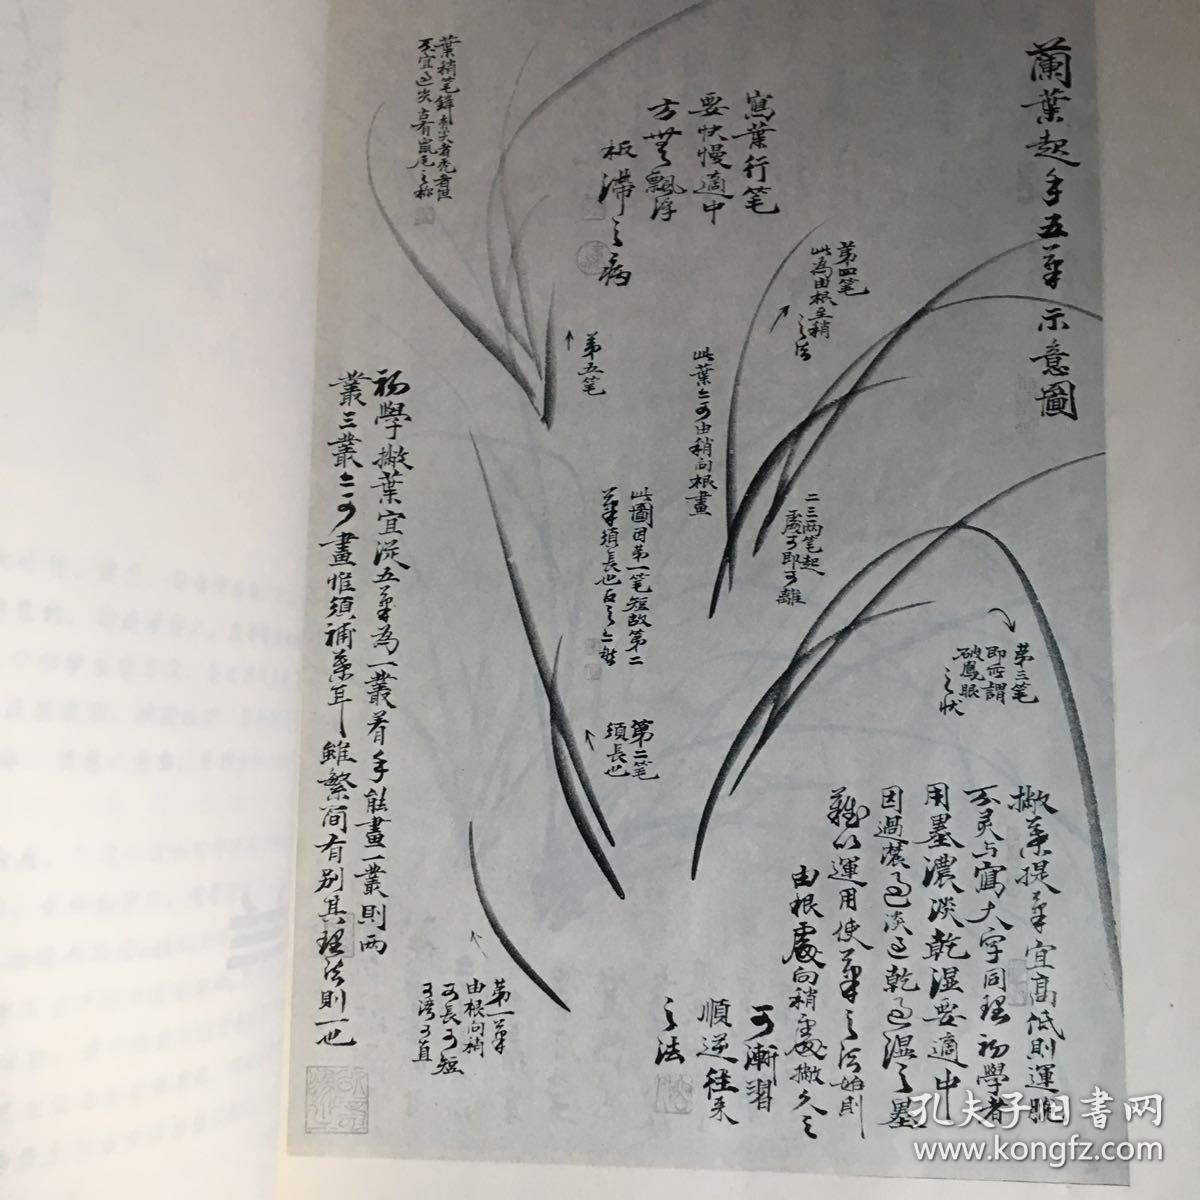 蘭葉起手五筆示意圖
寫葉行笔
要快慢適中
方無飄浮
板滯之病
葉稍笔鋒
不宜过尖古有鼠尾之称
第四笔
此為由根至稍
之法
此葉亦可由稍向根畫
二三两笔起
處可即可離
第三笔
即所謂
破鳳眼
之状
第五笔
此圖因第一笔短故第二
筆須長也反之亦然
第二笔
須長也
初學撇葉宜從五筆為一叢着手能畫一叢則两
叢三叢亦可畫惟須補葉耳雖繁简有别其理法則一也
第一筆
由根向稍
可長可短
可湾可直
撇葉提筆宜高低則運腕
不灵与寫大字同理初學者
用墨濃淡乾湿要適中
因過濃过淡过乾过湿之墨
難以運用使筆之法始則
由根處向稍處撇久之
可漸習
順逆往来
之法
孔夫子旧書网
www.kongfz.com